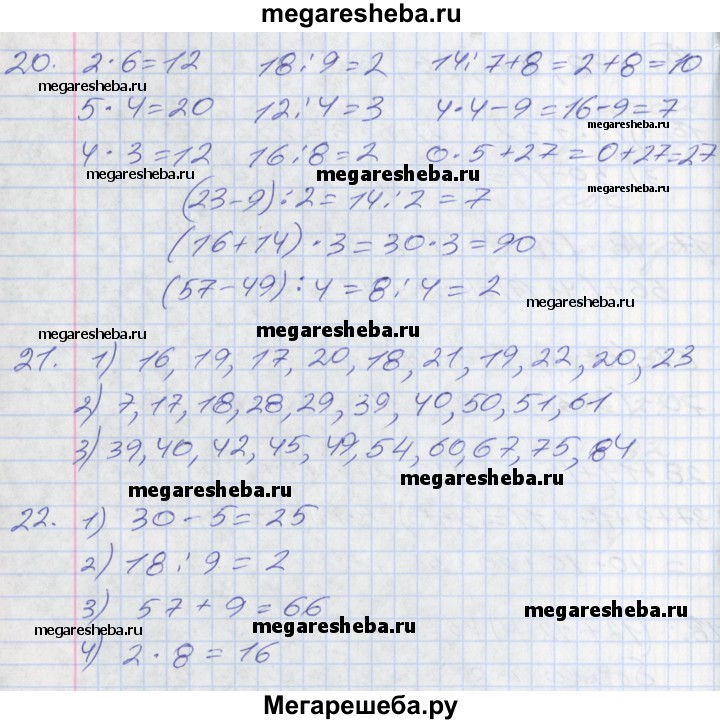 megaresheba.ru
20. 2·6=12 18:9=2 14:7+8=2+8=10
megaresheba.ru
5·4=20 12:4=3 4·4-9=16-9=7
megaresheba.ru
4·3=12 16:8=2 0·5+27=0+27=27
megaresheba.ru megaresheba.ru megaresheba.ru
(23-9):2=14:2=7
(16+14)·3=30·3=90
(57-49):4=8:4=2
megaresheba.ru
megaresheba.ru megaresheba.ru
21. 1) 16, 19, 17, 20, 18, 21, 19, 22, 20, 23
2) 7, 17, 18, 28, 29, 39, 40, 50, 51, 61
3) 39, 40, 42, 45, 49, 54, 60, 67, 75, 84
megaresheba.ru megaresheba.ru
22. 1) 30-5=25
2) 18:9=2
3) 57+9=66
megaresheba.ru megaresheba.ru megaresheba.ru
4) 2·8=16
Мегарешеба.ру